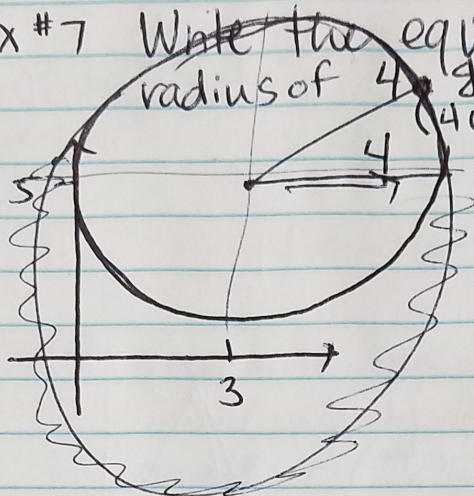 x #7 Write the equ
radius of 4 8
(40
4
5
3